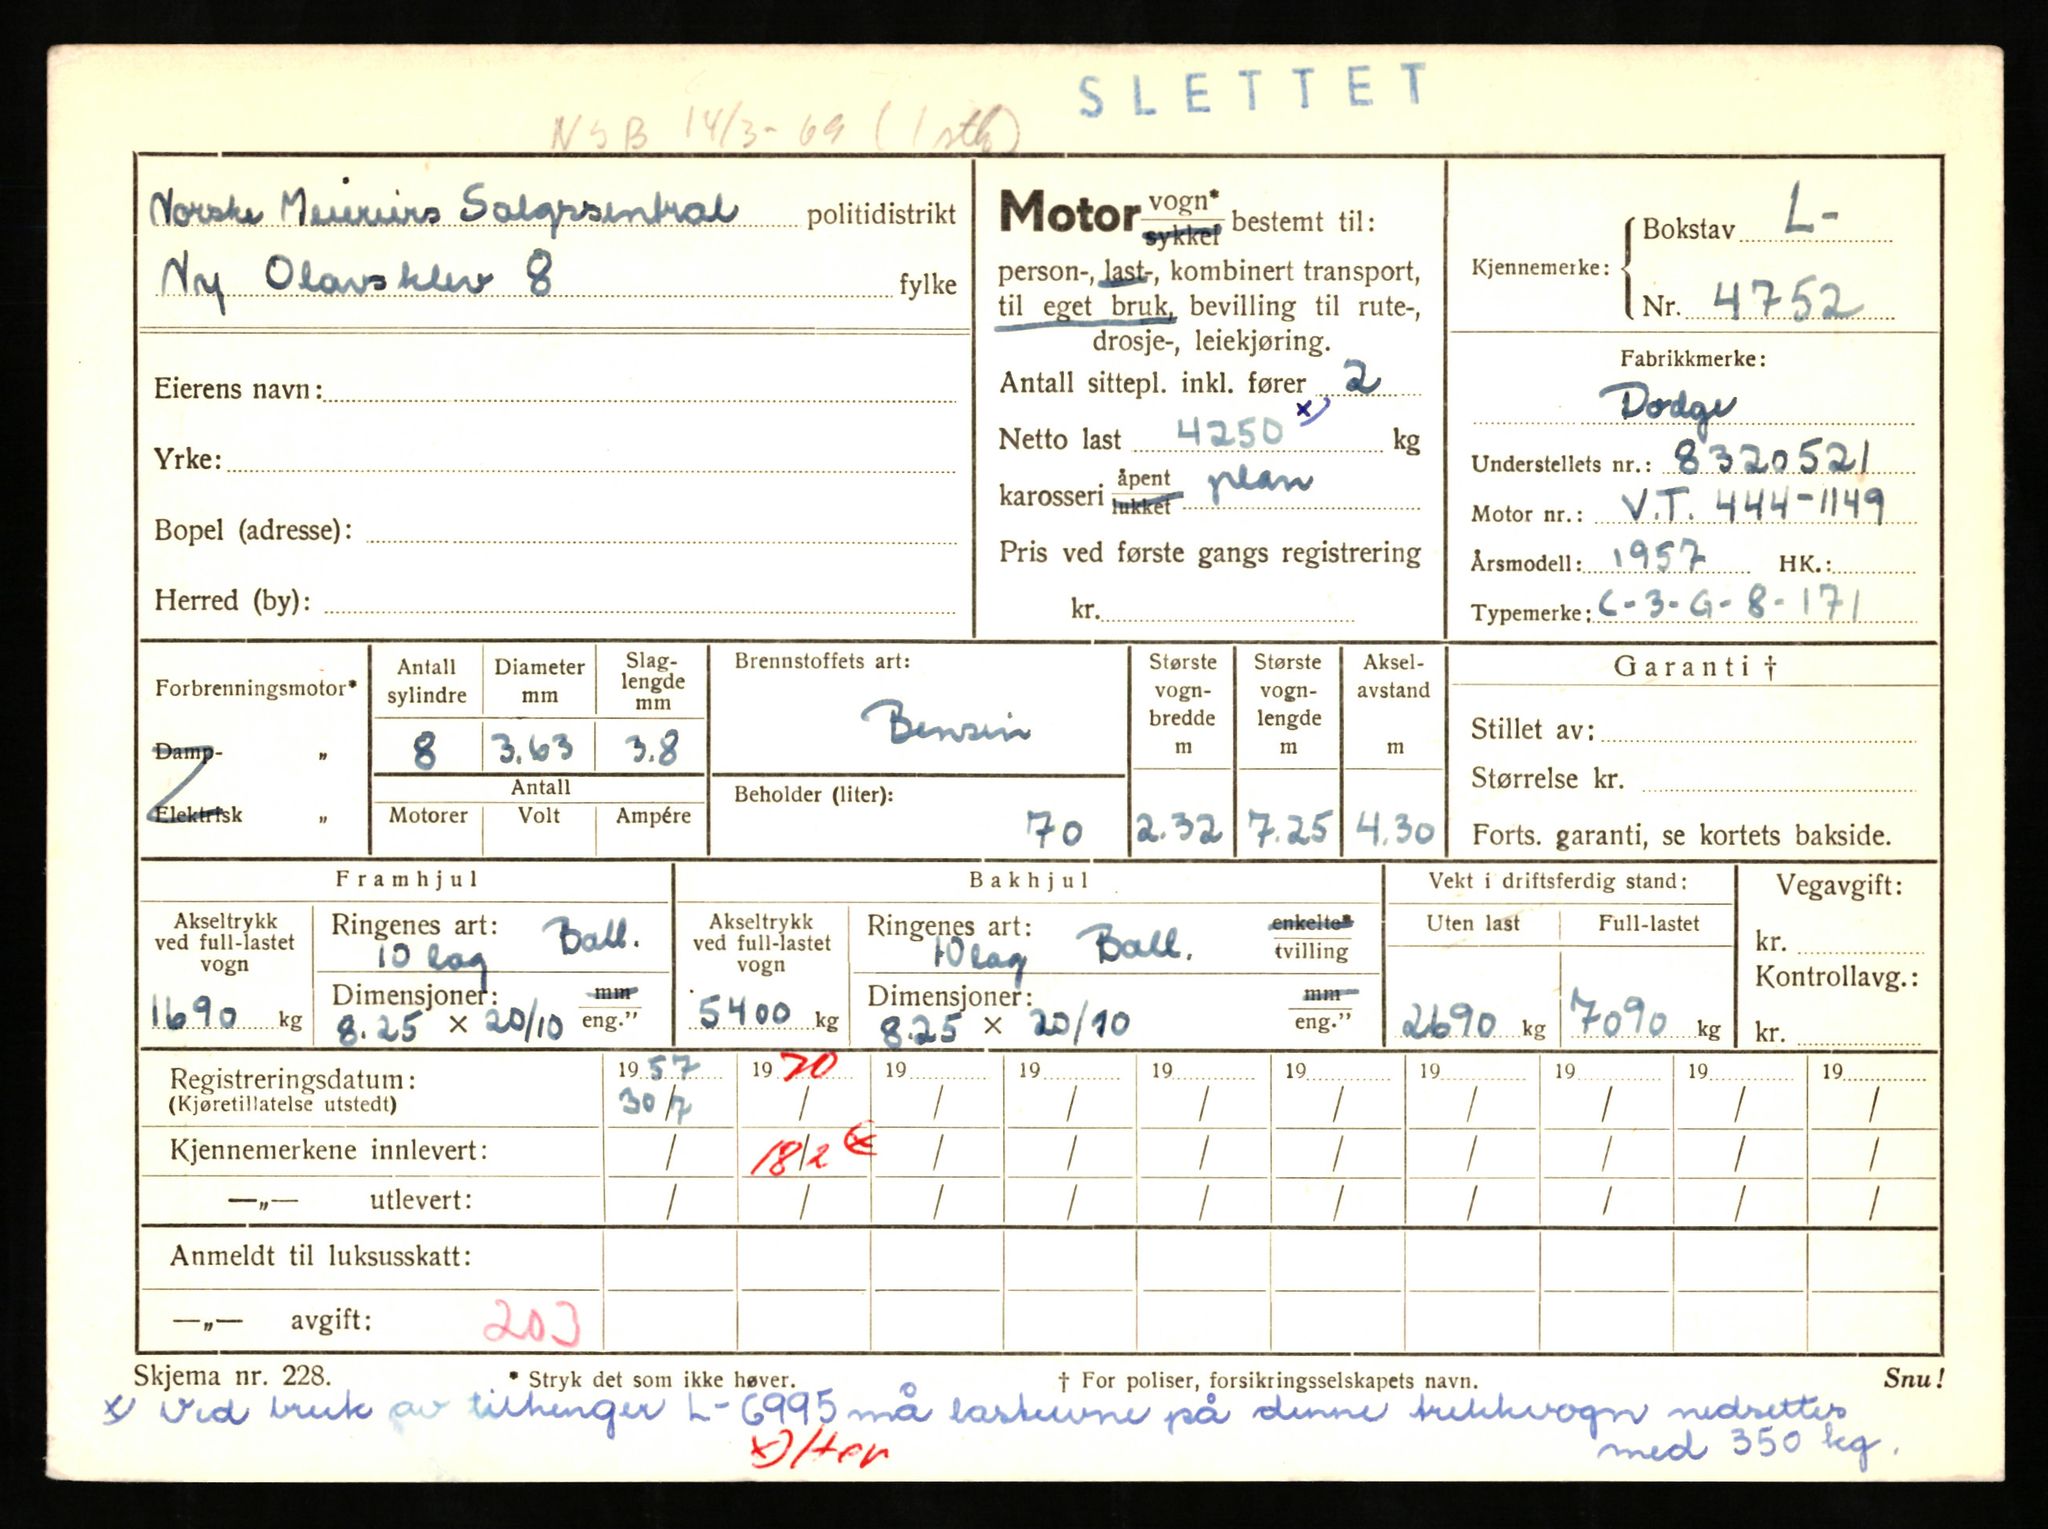 SLETTET
NSB 14/3-69 (1 stk)
Norske Meieriers Salgssentral politidistrikt
Ny Olavsklev 8 fylke
Eierens navn:
Yrke:
Bopel (adresse):
Herred (by):
Motor vogn* / sykkel bestemt til:
person-, last-, kombinert transport,
til eget bruk, bevilling til rute-,
drosje-, leiekjøring.
Antall sittepl. inkl. fører 2
Netto last 4250 x) kg
karosseri åpent / lukket plan
Pris ved første gangs registrering
kr.
Kjennemerke: Bokstav L-
Nr. 4752
Fabrikkmerke:
Dodge
Understellets nr.: 8320521
Motor nr.: V.T. 444-1149
Årsmodell: 1957 HK.:
Typemerke: C-3-G-8-171
Forbrenningsmotor*
Damp- „
Elektrisk „
Antall sylindre 8
Diameter mm 3.63
Slag-lengde mm 3.8
Antall
Motorer Volt Ampére
Brennstoffets art:
Bensin
Beholder (liter):
70
Største vogn-bredde m 2.32
Største vogn-lengde m 7.25
Aksel-avstand m 4.30
Garanti †
Stillet av:
Størrelse kr.
Forts. garanti, se kortets bakside.
Framhjul
Akseltrykk ved full-lastet vogn
1690 kg
Ringenes art: Ball.
10 lag
Dimensjoner: mm / eng.”
8.25 × 20/10
Bakhjul
Akseltrykk ved full-lastet vogn
5400 kg
Ringenes art: Ball. enkelte* / tvilling
10 lag
Dimensjoner: mm / eng.”
8.25 × 20/10
Vekt i driftsferdig stand:
Uten last Full-lastet
2690 kg 7090 kg
Vegavgift:
kr.
Kontrollavg.:
kr.
Registreringsdatum: 1957 1970 19 19 19 19 19 19 19 19
(Kjøretillatelse utstedt) 30/7 / / / / / / / / /
Kjennemerkene innlevert: / 18/2 x) / / / / / / / /
—„— utlevert: / / / / / / / / / /
Anmeldt til luksusskatt:
—„— avgift: 203
Skjema nr. 228. * Stryk det som ikke høver. † For poliser, forsikringsselskapets navn. Snu!
x) Ved bruk av tilhenger L-6995 må lasteevne på denne trekkvogn nedsettes
med 350 kg.